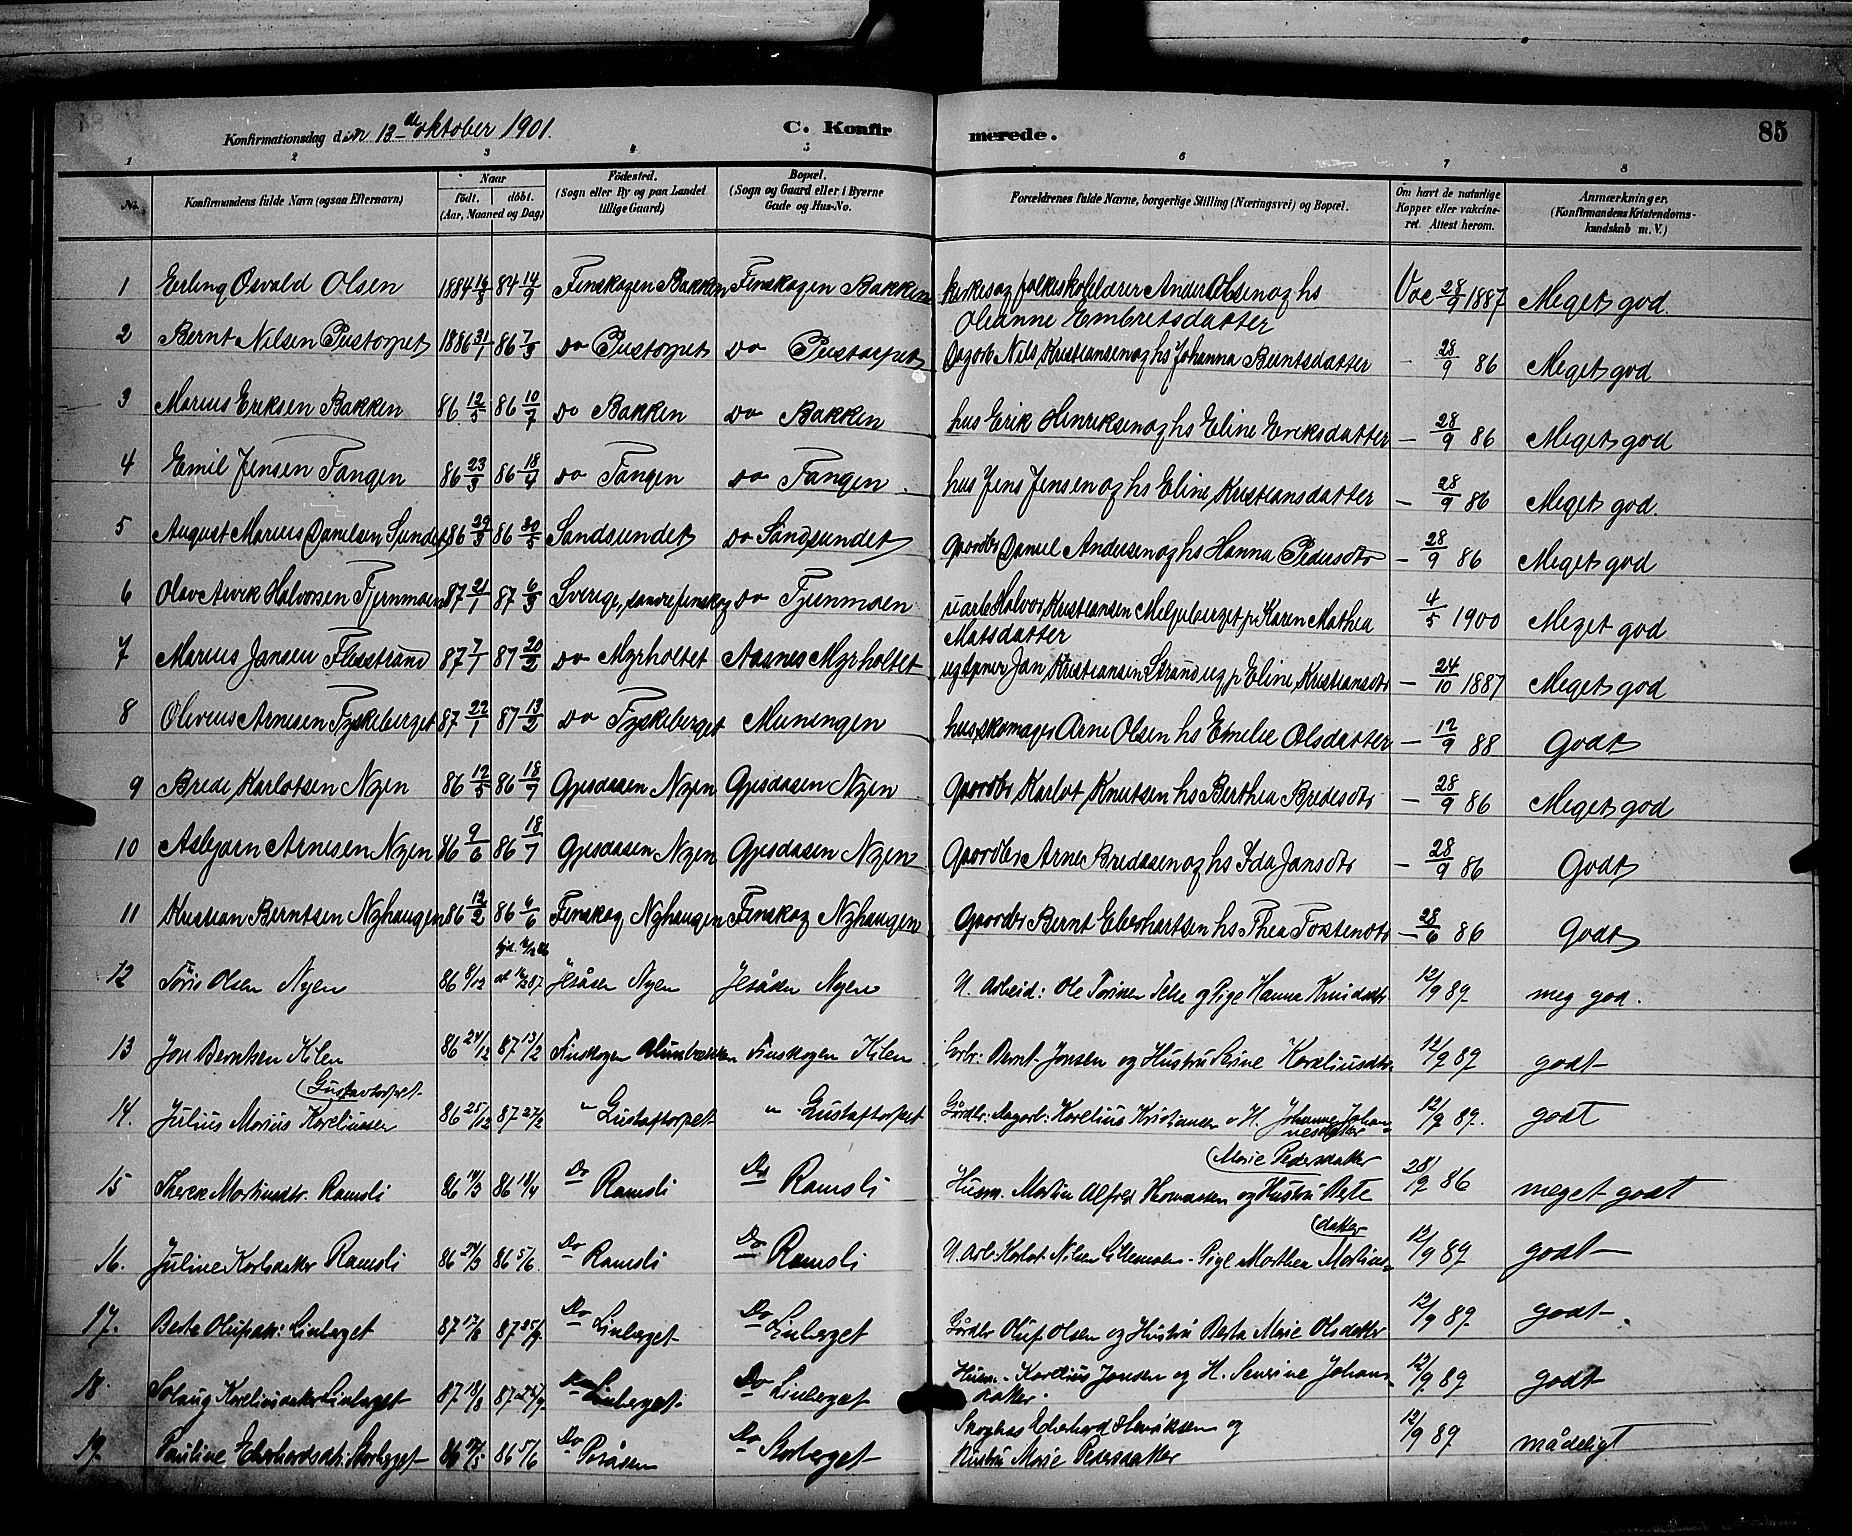 Konfirmationsdag den 13de oktober 1901.
C. Konfirmerede.
85
1 2 3 4 5 6 7 8
No.
Konfirmandens fulde Navn (ogsaa Efternavn)
Naar
født. døbt.
(Aar, Maaned og Dag)
Fødested.
(Sogn eller By og paa Landet
tillige Gaard)
Bopæl.
(Sogn og Gaard eller i Byerne
Gade og Hus-No.
Forældrenes fulde Navne, borgerlige Stilling (Næringsvei) og Bopæl.
Om havt de naturlige
Kopper eller vakcine-
ret. Attest herom.
Anmærkninger.
(Konfirmandens Kristendoms-
kundskab m. V.)
1 Erling Osvald Olsen 1884 84 14/9 Finskogen Bakken Finskogen Bakken kirkesog folkeskolelærer Olsen og hs Vac 28/9 1887 Meget god.
Oleanne Embretsdatter
2 Bernt Nilsen Pustorpet 1886 31/1 86 7/3 Do Pustorpet Do Pustorpet Dagarb Nils Kristiansen og hs Johanna Berntsdatter - 28/9 86 Meget god
3 Marius Eriksen Bakken 86 12/5 86 10/7 Do Bakken Do Bakken hus Erik Henriksen og hs Eline Eriksdatter - 28/9 86 Meget god
4 Emil Jensen Tangen 86 23/3 86 18/4 Do Tangen Do Tangen. hus Jens Jensen og hs Eline Kristiansdatter - 28/9 86 Meget god.
5 August Marius Danielsen Sundet 86 29/3 86 30/5 Sandsundet Do Sandsundet Gaardbr Daniel Andersen og hs Hanna Pedersdtr - 28/9 86 Meget god
6 Olav Arvik Halvorsen Tjernmoen 87 21/1 87 6/3 Sverige, søndre finskog Do Tjernmoen u arb Halvor Kristiansen p Karen Mathea 4/5 1900 Meget god
Matsdatter
7 Marius Jansen Flisstrand 87 7/1 87 20/2 Do Myrholtet Aasnes Myrholtet ug Jan Kristiansen Strand ug p Eline Kristiansdtr - 24/10 1887 Meget god
8 Oliveus Arnesen Fyskeberget 87 22/1 87 13/2 Do Fyskeberget Muningen hus skomager Arne Olsen hs Emelie Olsdatter - 12/9 88 Godt
9 Brede Karlotsen Nyen 86 12/5 86 18/7 Gjesdasen Nyen Gjesdasen Nyen Gaardbr Karlot Knutsen hs Berthea Bredesdtr - 28/9 86 Meget god
10 Asbjørn Arnesen Nyen 86 9/6 86 18/7 Gjesdasen Nyen Gjesdasen Nyen Gaardbr Arne Bredesen og hs Ida Jansdtr - 28/9 86 Godt
11 Kristian Berntsen Nyhaugen 86 12/2 86 6/6 Finskog Nyhaugen Finskog Nyhaugen Gaardbr Bernt Eberhartsen hs Thea Tostensdtr - 28/6 86 Godt
12 Olsen Nyen 86 8/12 87 Nyen Nyen U. Arbeid: Ole og Pige Hanna Knudsdtr 12/9 89 meg god.
13 Jon Berntsen Kilen 86 24/12 87 13/2 Finskogen Finskogen Kilen Bernt Jonsen og Hustru Koreliusdtr. 12/9 89 godt
(Gustavtorpet
14. Julius Marius Koreliussen 86 25/12 87 27/2 " Gustaftorpet " Gustaftorpet Gårdbr: Dagarb: Korelius Kristiansen o H. Johanne Johan=
nesdatter 12/9 89. godt
(Marie Pedersdatter
15 Martinsdtr. Ramsli 86 14/3 86 18/4 Do Ramsli Do Ramsli Husm. Martin Alfred og Hustru Berte 28/9 86 meget godt
(datter
16. Juline Karlsdatter Ramsli 86 86 5/6. Do Ramsli Do Ramsli U. Arb: Karlot Nilsen - Pige Marthea Martins= 12/9 89 godt
17. Berte Olufsdtr: Linberget 87 17/6 87 25/9. Do Linberget Do Linberget Gårdbr Oluf Olsen og Hustru Berta Marie Olsdatter 12/9 89 godt.
18. Solaug Koreliusdatter Linberget 87 18/8 87 25/9. Do Linberget. Do Linberget Husm. Korelius Jonsen og H. Severine Johans= 12/9. 89 godt
datter.
19. Pauline Eberhardsdtr: Storberget 86 86 5/6 Do Poråsen Do Storberget Eberhard Henriksen og 12/9 89 mådeligt
Hustru Marie Pedersdatter